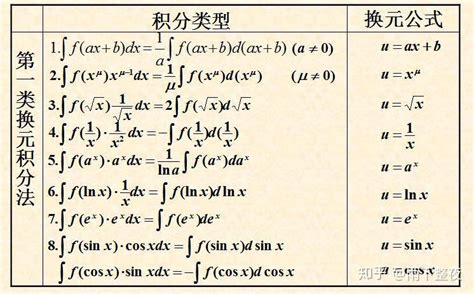 积分类型 换元公式
第一类换元积分法
1.∫f(ax+b)dx=1/a∫f(ax+b)d(ax+b) (a≠0) u=ax+b
2.∫f(x^μ)x^(μ-1)dx=1/μ∫f(x^μ)d(x^μ) (μ≠0) u=x^μ
3.∫f(√x)1/√x dx=2∫f(√x)d√x u=√x
4.∫f(1/x)·1/x² dx=-∫f(1/x)d(1/x) u=1/x
5.∫f(a^x)·a^x dx=1/ln a∫f(a^x)da^x u=a^x
6.∫f(ln x)·1/x dx=∫f(ln x)d ln x u=ln x
7.∫f(e^x)·e^x dx=∫f(e^x)de^x u=e^x
8.∫f(sin x)·cos xdx=∫f(sin x)d sin x u=sin x
∫f(cos x)·sin xdx=-∫f(cos x)d cos x u=cos x
知乎